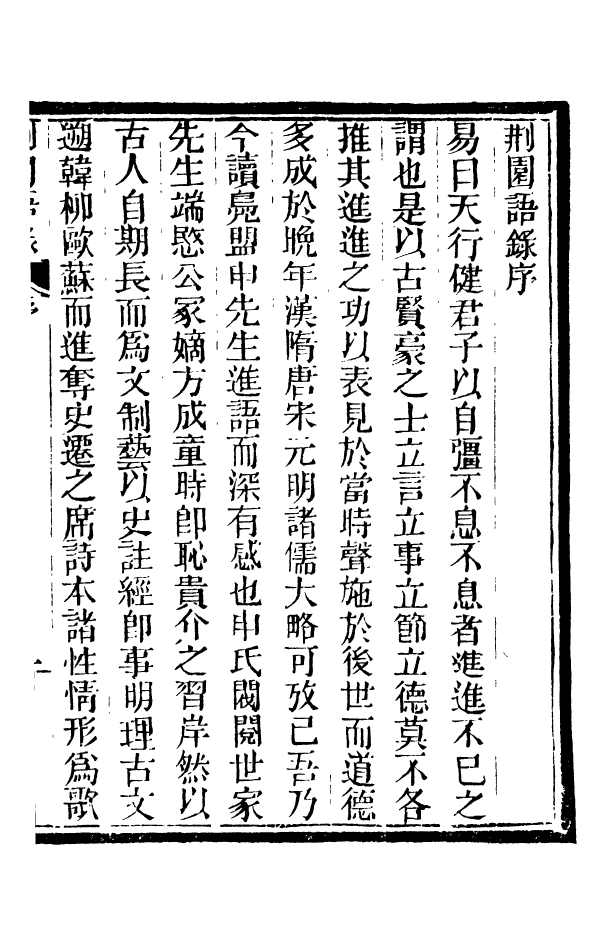 荆園語錄序
易曰天行健君子以自彊不息不息者進進不已之
謂也是以古賢豪之士立言立事立節立德莫不各
推其進進之功以表見於當時聲施於後世而道德
多成於晚年漢隋唐宋元明諸儒大略可攷已吾乃
今讀鳧盟申先生進語而深有感也申氏閥閱世家
先生端愍公冡嫡方成童時卽恥貴介之習岸然以
古人自期長而爲文制藝以史註經卽事明理古文
遡韓柳歐蘇而進奪史遷之席詩本諸性情形爲歌